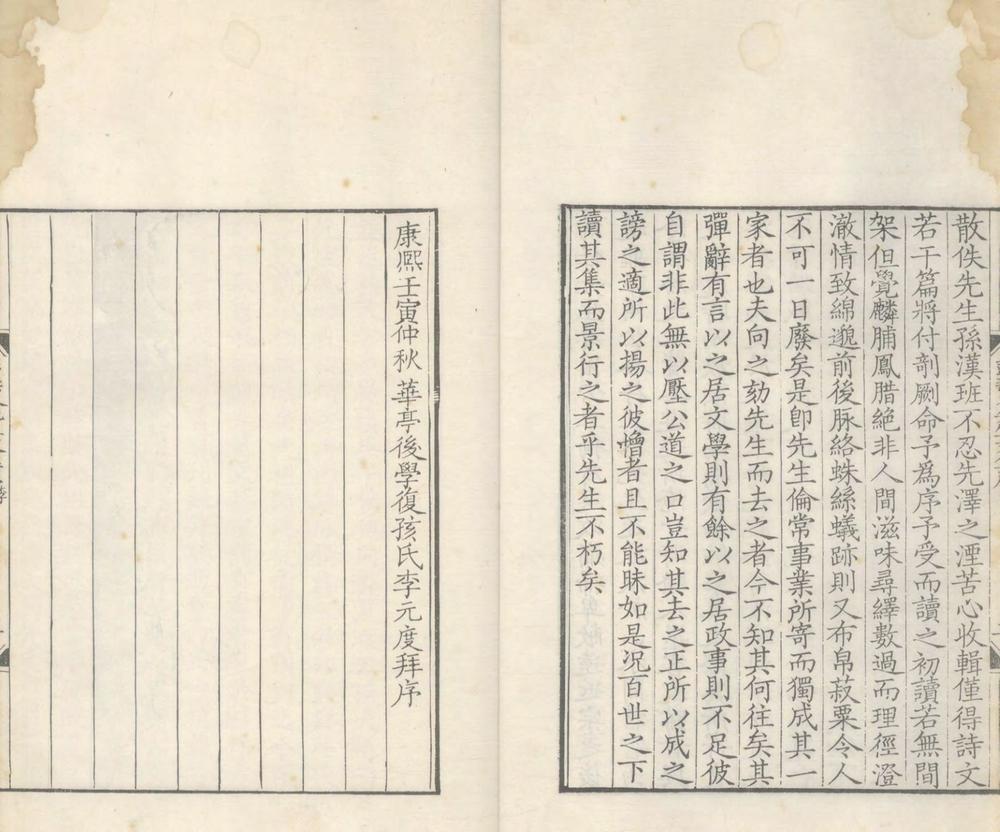 散佚先生孫漢班不忍先澤之湮苦心收輯僅得詩文
若干篇將付剞劂命予爲序予受而讀之初讀若無間
架但覺麟脯鳳腊絕非人間滋味尋繹數過而理徑澄
澈情致綿邈前後脉絡蛛絲蟻跡則又布帛菽粟令人
不可一日廢矣是卽先生倫常事業所寄而獨成其一
家者也夫向之劾先生而去之者今不知其何往矣其
彈辭有言以之居文學則有餘以之居政事則不足彼
自謂非此無以壓公道之口豈知其去之正所以成之
謗之適所以揚之彼憎者且不能昧如是况百世之下
讀其集而景行之者乎先生不朽矣
康熙壬寅仲秋華亭後學復孩氏李元度拜序